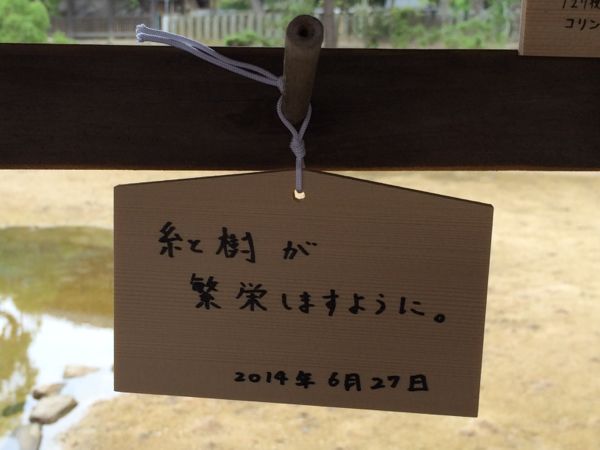 糸と樹が
繁栄しますように。
2014年6月27日
コリン